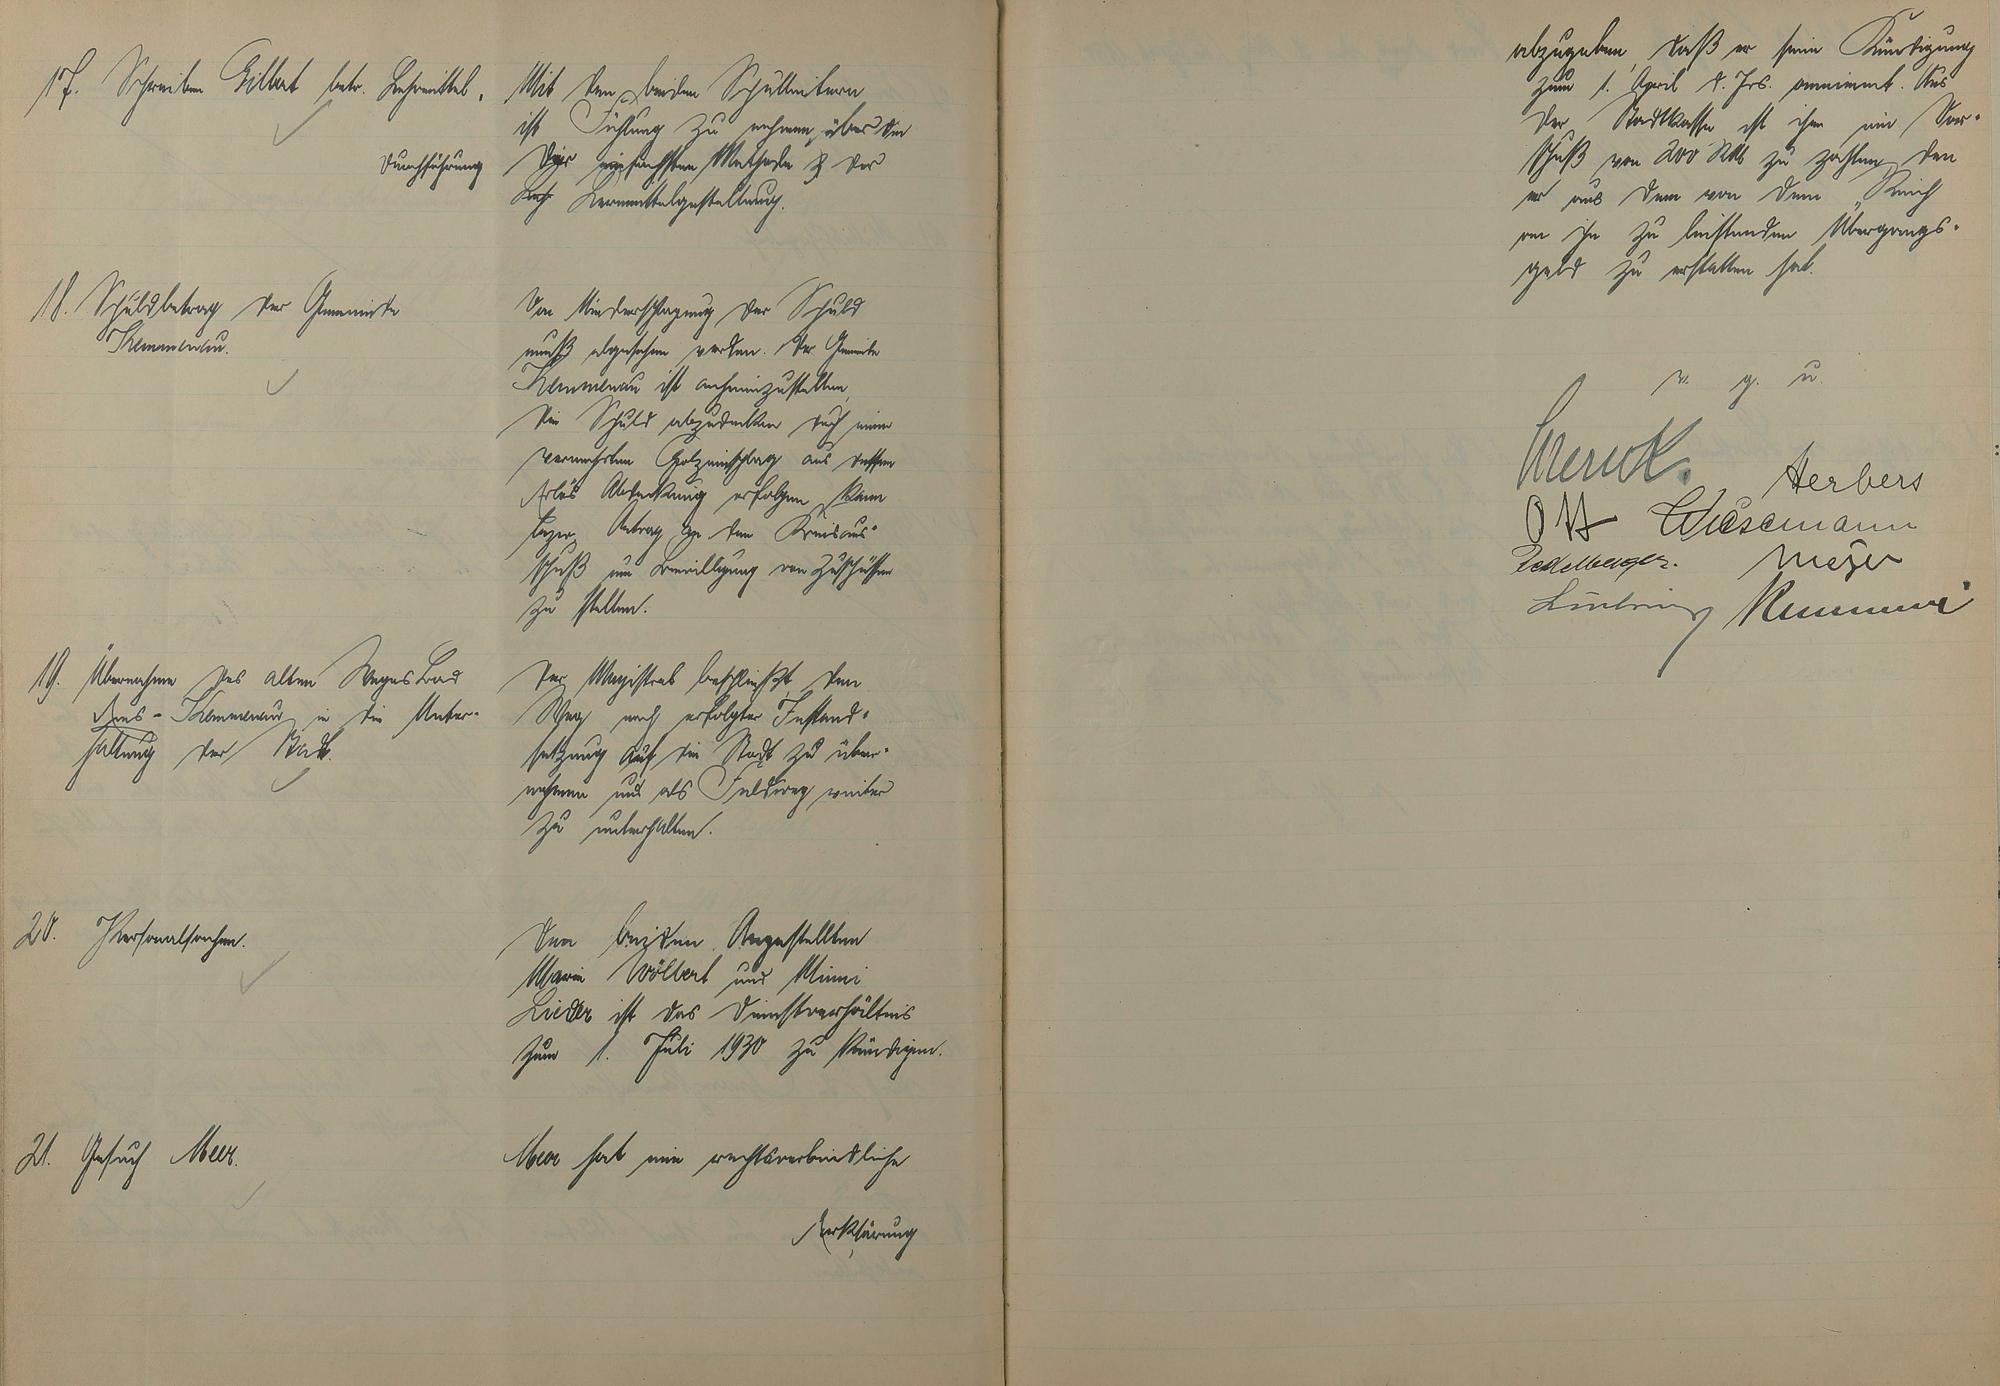 17. Schreiben Gilbert betr. Lehrmittel.
Mit den beiden Schulleitern
ist Fühlung zu nehmen über die
Durchführung
der einfachsten Methode der
Lernmittelgestellung.
18. Schuldbetrag der Gemeinde
Kemmenau.
Von Niederschlagung der Schuld
muß abgesehen werden. Der Gemeinde
Kemmenau ist anheimzustellen,
die Schuld abzudecken durch einen
vermehrten Holzeinschlag aus dessen
Erlös Abdeckung erfolgen kann
bezw. Antrag an den Kreisaus-
schuß um Bewilligung von Zuschüssen
zu stellen.
19. Übernahme des alten Weges Bad
Ems - Kemmenau in die Unter-
haltung der Stadt.
Der Magistrat beschließt, den
Weg nach erfolgter Instand-
setzung auf die Stadt zu über-
nehmen und als Feldweg weiter
zu unterhalten.
20. Personalsachen.
Den beiden Angestellten
Maria Wölbert und Mimi
Lieder ist das Dienstverhältnis
zum 1. Juli 1930 zu kündigen.
21. Gesuch Meer.
Meer hat eine rechtsverbindliche
Erklärung
abzugeben, daß er seine Kündigung
zum 1. April d. Jrs. annimmt. Aus
der Stadtkasse ist ihm ein Vor-
schuß von 200 RM zu zahlen, den
er aus dem von dem Reich
an ihn zu leistenden Übergangs-
geld zu erstatten hat.
v. g. u.
Herbers
Ott Wiesemann
Meyer